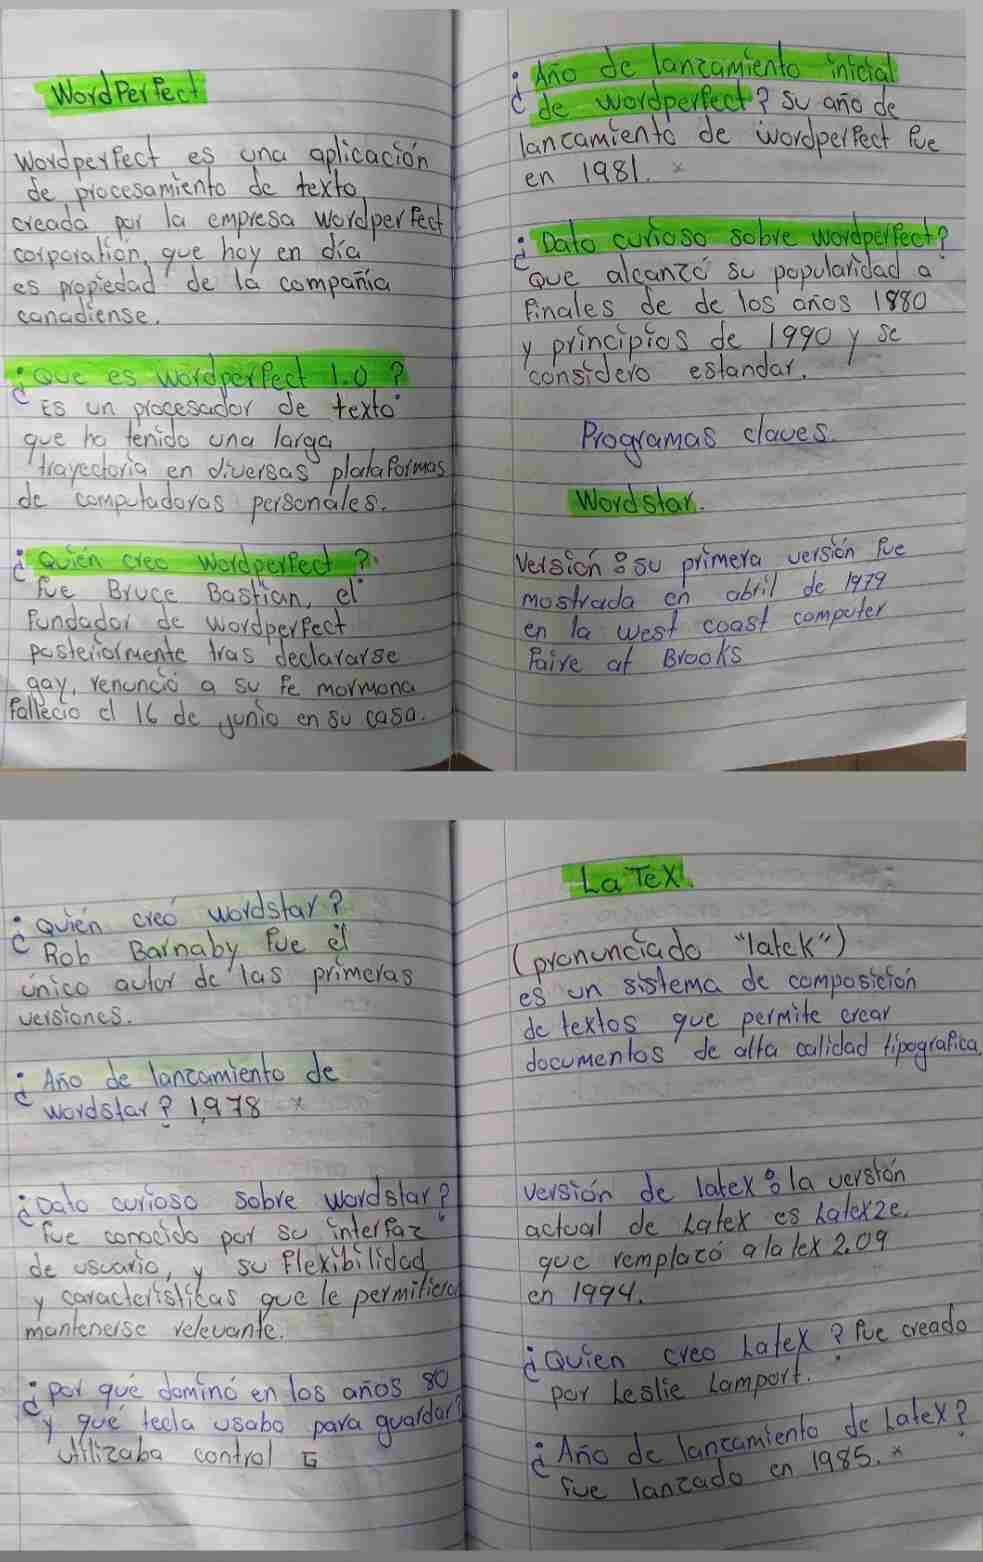 WordPerfect
Wordperfect es una aplicación
de procesamiento de texto
creada por la empresa wordperfect
corporatión, que hoy en día
es propiedad de la compañía
canadiense.
¿Que es wordperfect 1.0?
Es un procesador de texto
que ha tenido una larga
trayectoria en diversas plataformas
de computadoras personales.
¿Quién creo Wordperfect?
fue Bruce Bastian, el
fundador de wordperfect
posteriormente tras declararse
gay, renunció a su fe mormona
falleció el 16 de junio en su casa.
¿Año de lanzamiento inicial
de wordperfect? Su año de
lanzamiento de wordperfect fue
en 1981. x
¿Dato curioso sobre wordperfect?
Que alcanzó su popularidad a
finales de de los años 1880
y principios de 1990 y se
considero estandar.
Programas claves.
Wordstar.
Versión: su primera versión fue
mostrada en abril de 1979
en la west coast computer
faire at Brooks
¿Quién creó wordstar?
Rob Barnaby fue el
único autor de las primeras
versiones.
¿Año de lanzamiento de
wordstar? 1,978 x
¿Dato curioso sobre wordstar?
fue conocido por su interfaz
de usuario, y su flexibilidad
y características que le permitiero
mantenerse relevante.
¿por qué dominó en los años 80
y qué tecla usaba para guardar?
Utilizaba control G
LaTeX.
(pronunciado "latek")
es un sistema de composición
de textos que permite crear
documentos de alta calidad tipografica
versión de latex: la versión
actual de Latex es Latex2e.
que remplazó a latex 2.09
en 1994.
¿Quien creo Latex? fue creado
por Leslie Lamport.
¿Año de lanzamiento de Latex?
fue lanzado en 1985. x